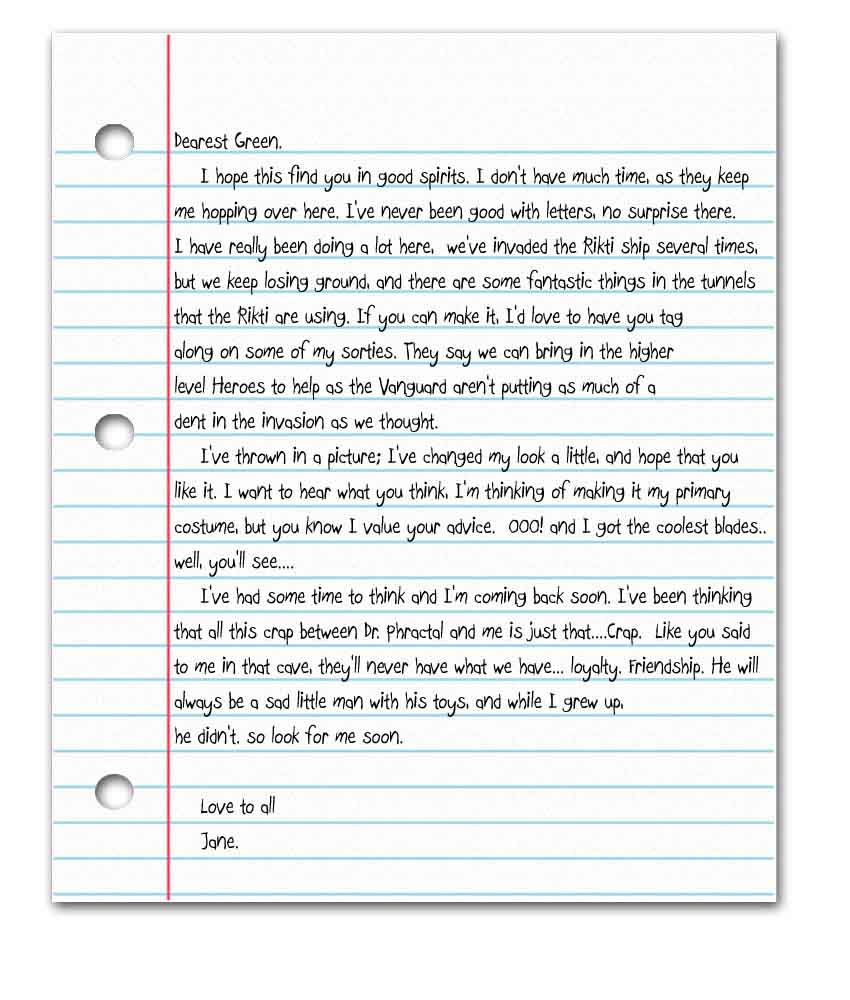 Dearest Green,
I hope this find you in good spirits. I don't have much time, as they keep
me hopping over here. I've never been good with letters, no surprise there.
I have really been doing a lot here,  we've invaded the Rikti ship several times,
but we keep losing ground, and there are some fantastic things in the tunnels
that the Rikti are using. If you can make it, I'd love to have you tag
along on some of my sorties. They say we can bring in the higher
level Heroes to help as the Vanguard aren't putting as much of a
dent in the invasion as we thought.
I've thrown in a picture; I've changed my look a little, and hope that you
like it. I want to hear what you think, I'm thinking of making it my primary
costume, but you know I value your advice.  OOO! and I got the coolest blades..
well, you'll see....
I've had some time to think and I'm coming back soon. I've been thinking
that all this crap between Dr. Phractal and me is just that....Crap.  Like you said
to me in that cave, they'll never have what we have... loyalty. Friendship. He will
always be a sad little man with his toys, and while I grew up,
he didn't. so look for me soon.
Love to all
Jane.